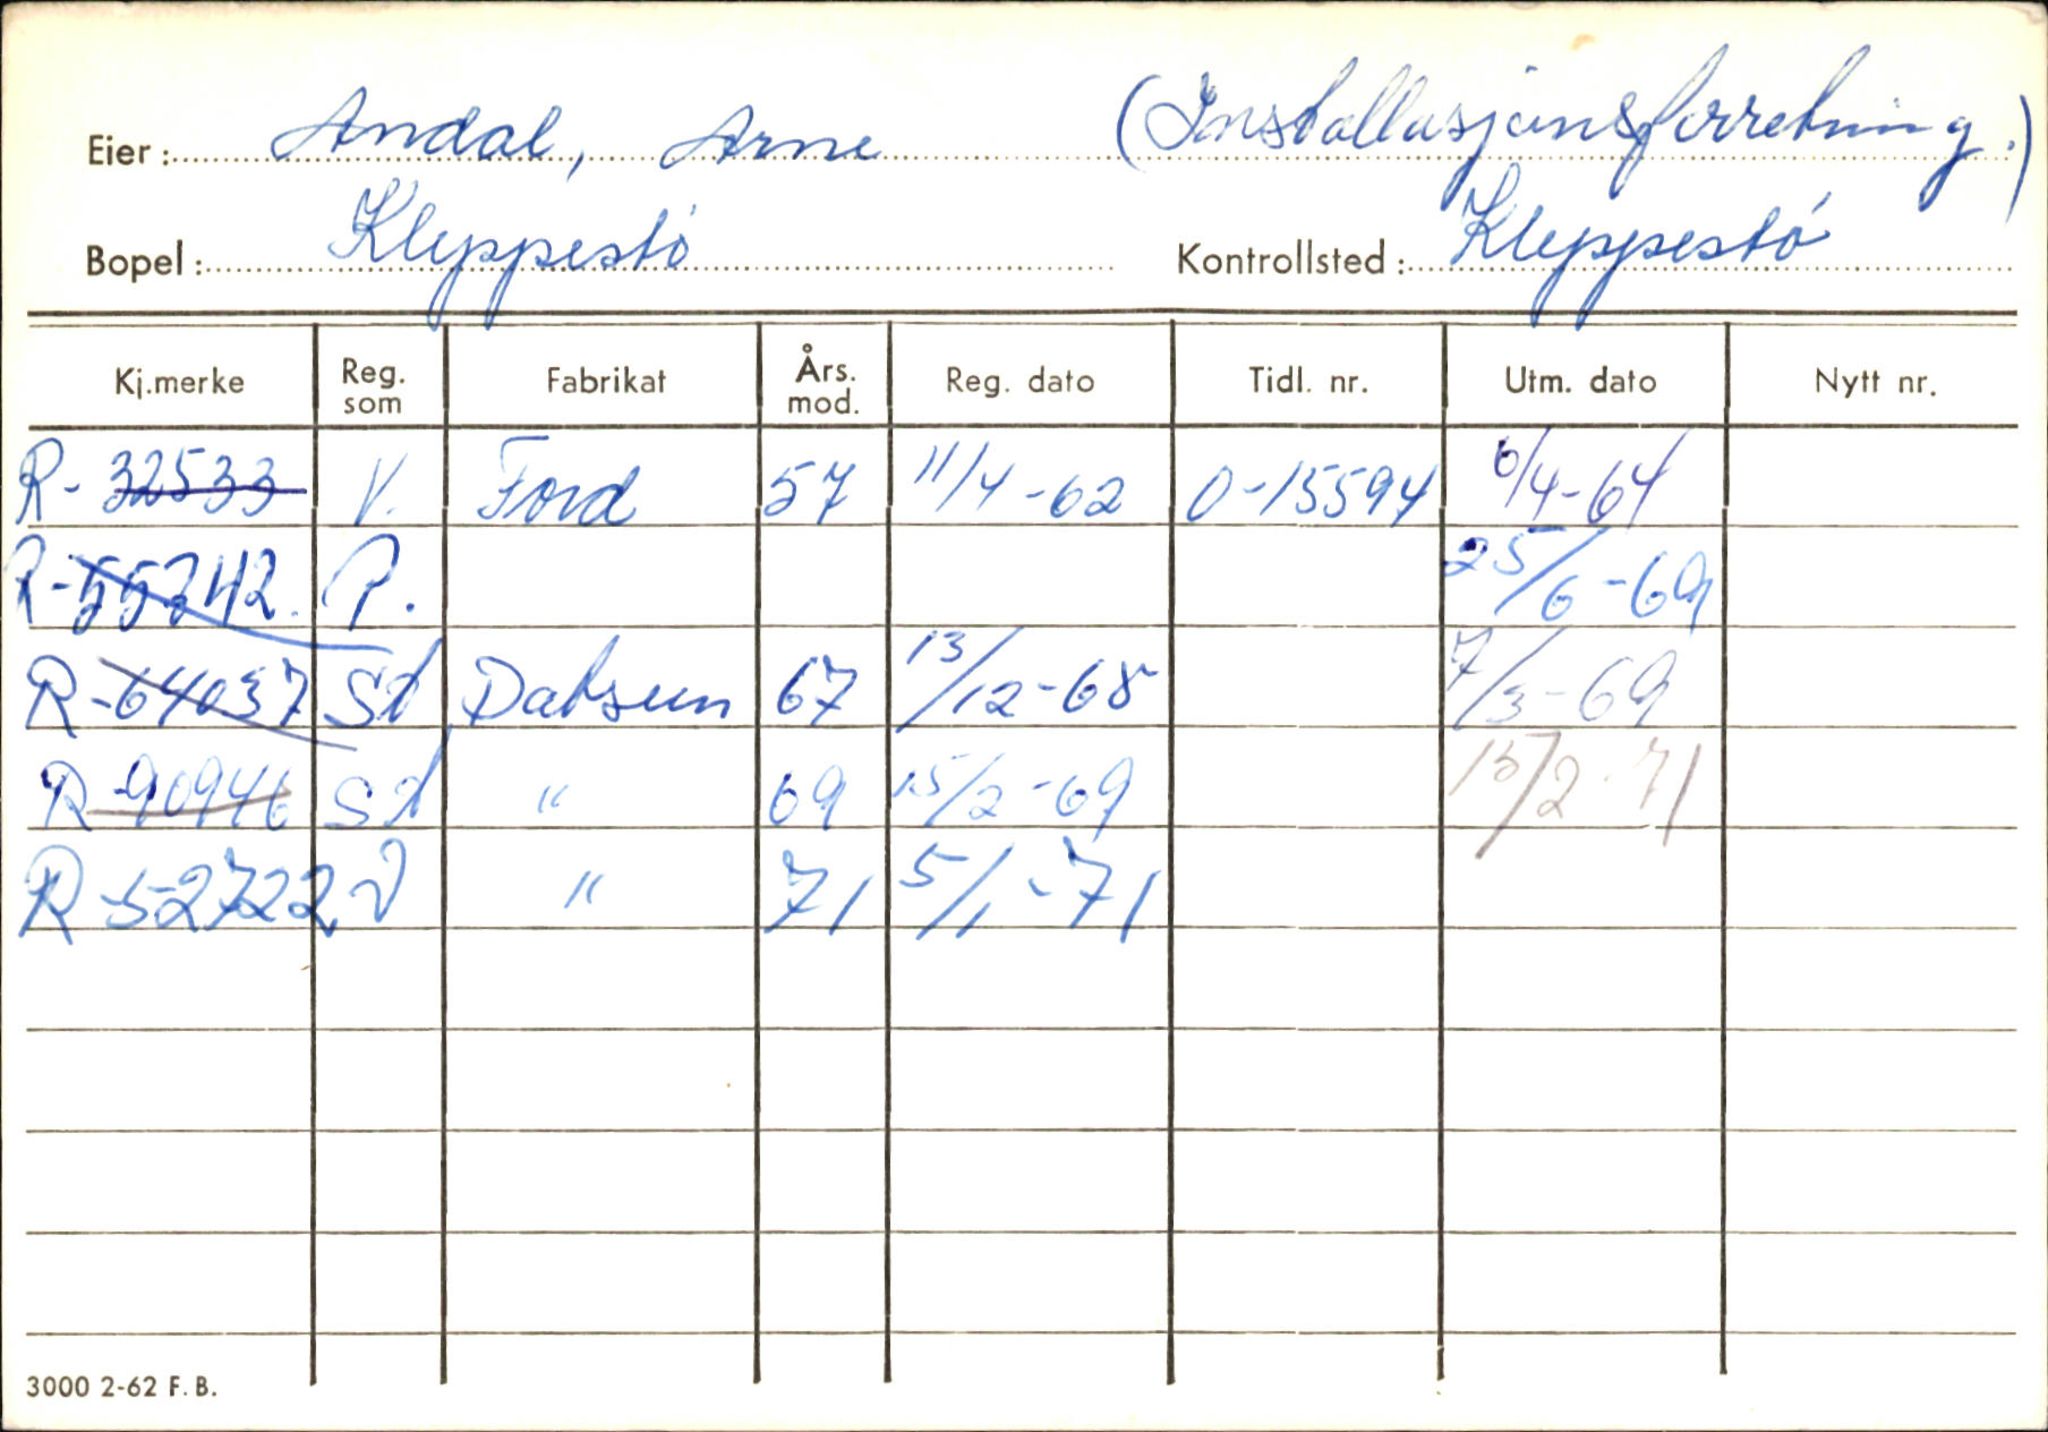 Eier: Andal, Arne (Installasjonsforretning.)
Bopel: Kleppestö Kontrollsted: Kleppestö
Kj.merke Reg. som Fabrikat Års. mod. Reg. dato Tidl. nr. Utm. dato Nytt nr.
R-32533 V. Ford 57 11/4-62 O-15594 6/4-64
R-55242. P. 25/6-69
R-64037 St Datsun 67 13/12-68 7/3-69
R-90946 St " 69 15/2-69 15/2-71
R-52722 V " 71 5/1-71
3000 2-62 F.B.